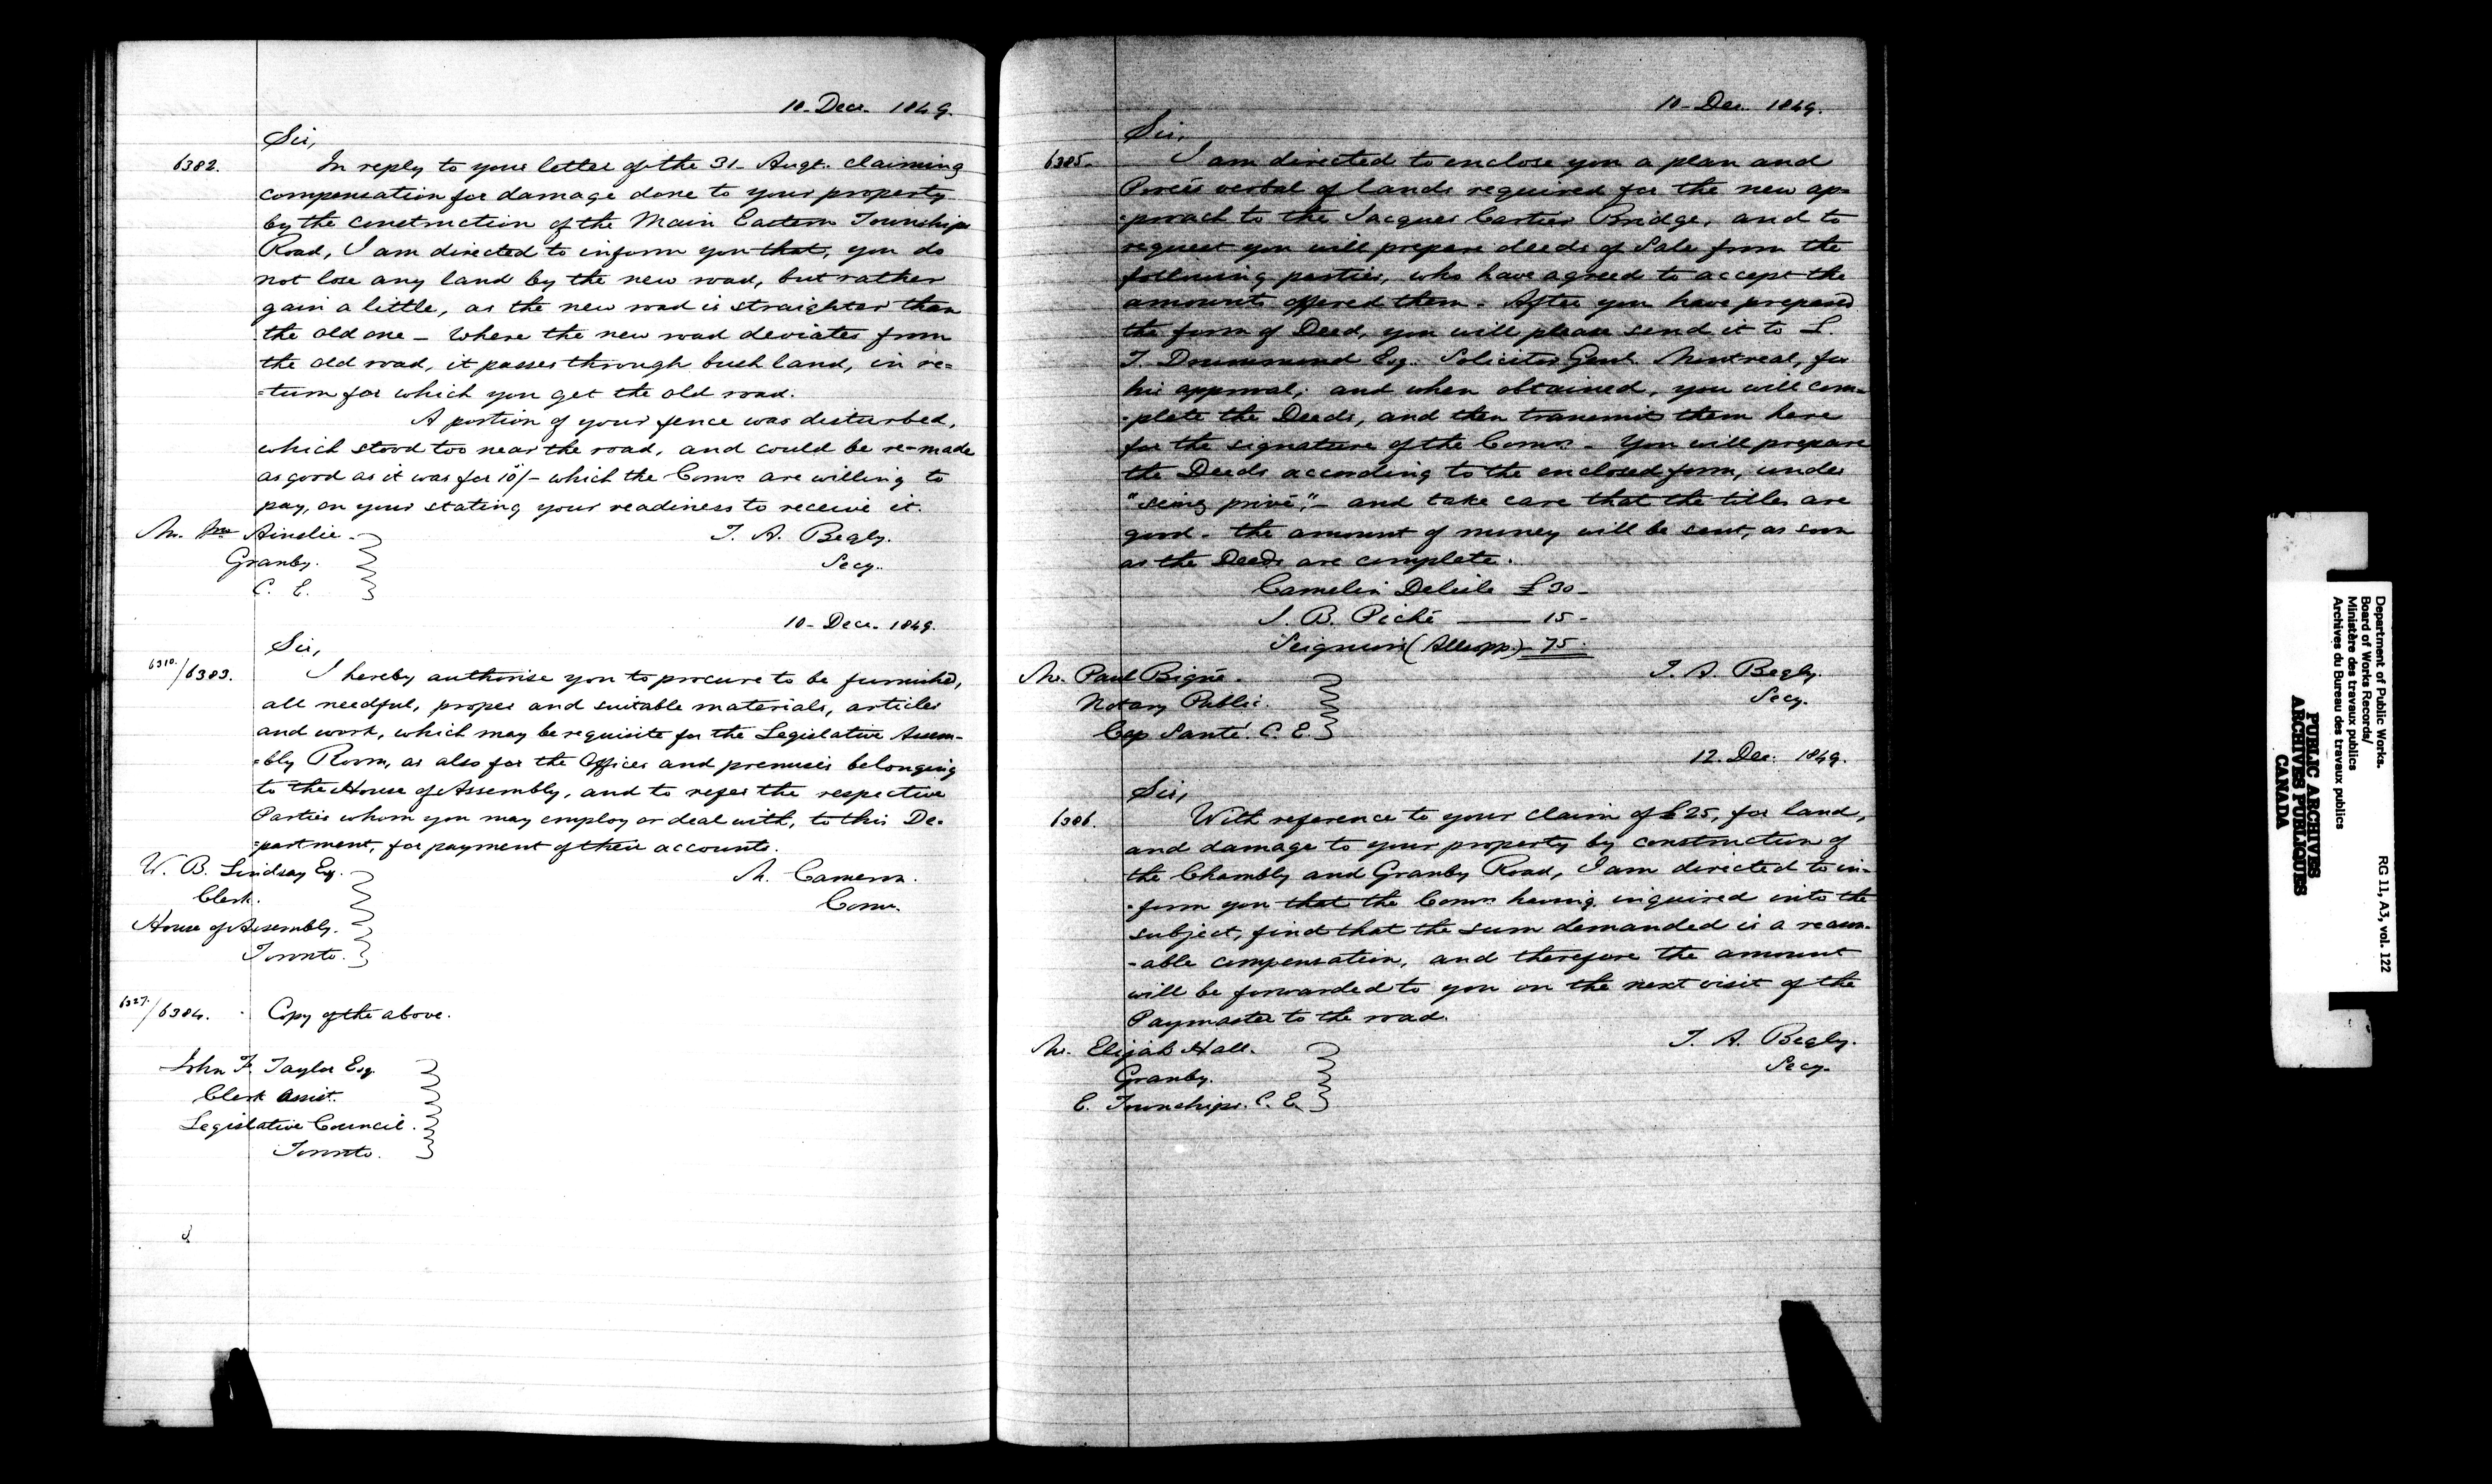 10 - Decr. 1849.
Sir,
6382.
In reply to your letter of the 31 - Augt. claiming
compensation for damage done to your property
by the construction of the Main Eastern Townships
Road, I am directed to inform you that, you do
not lose any land by the new road, but rather
gain a little, as the new road is straighter than
the old one - Where the new road deviates from
the old road, it passes through bush land, in re=
=turn for which you get the old road.
A portion of your fence was disturbed,
which stood too near the road, and could be re-made
as good as it was for 10/- which the Comrs. are willing to
pay, on your stating your readiness to receive it.
Mr. Ainslie.
T. A. Begly.
Granby.
Secy.
C. E.
10 - Decr. 1849.
Sir,
6310./6383.
I hereby authorise you to procure to be furnished,
all needful, proper and suitable materials, articles
and work, which may be requisite for the Legislative Assem-
=bly Room, as also for the Offices and premises belonging
to the House of Assembly, and to refer the respective
Parties whom you may employ or deal with, to this De-
=partment, for payment of their accounts.
W. B. Lindsay Esq.
M. Cameron.
Clerk.
Comr.
House of Assembly.
Toronto.
6327./6384. Copy of the above.
John F. Taylor Esq.
Clerk Assist.
Legislative Council.
Toronto.
10 - Dec. 1849.
Sir,
6385.
I am directed to enclose you a plan and
Procès verbal of lands required for the new ap-
=proach to the Jacques Cartier Bridge, and to
request you will prepare deeds of Sale from the
following parties, who have agreed to accept the
amounts offered them. After you have prepared
the form of Deed, you will please send it to L.
T. Drummond Esq. Solicitor Genl. Montreal, for
his approval; and when obtained, you will com-
-plete the Deeds, and then transmit them here
for the signature of the Comrs. - You will prepare
the Deeds according to the enclosed form, under
"seing privé," - and take care that the titles are
good. the amount of money will be sent, as soon
as the Deeds are complete.
Camelin Delisle £30 -
J. B. Piché —— 15 -
Seigneur (Allsopp) - 75.
Mr. Paul Bigué.
T. A. Begly.
Notary Public.
Secy.
Cap Santé. C. E.
12. Dec. 1849.
Sir,
6386.
With reference to your claim of £25, for land,
and damage to your property by construction of
the Chambly and Granby Road, I am directed to in-
-form you that the Comrs. having inquired into the
subject, find that the sum demanded is a reason-
-able compensation, and therefore the amount
will be forwarded to you on the next visit of the
Paymaster to the road.
Mr. Elijah Hall.
T. A. Begly.
Granby.
Secy.
E. Townships. C. E.
Department of Public Works.
Board of Works Records/
Ministère des travaux publics
Archives du Bureau des travaux publics
RG 11, A3, vol. 122
PUBLIC ARCHIVES
ARCHIVES PUBLIQUES
CANADA